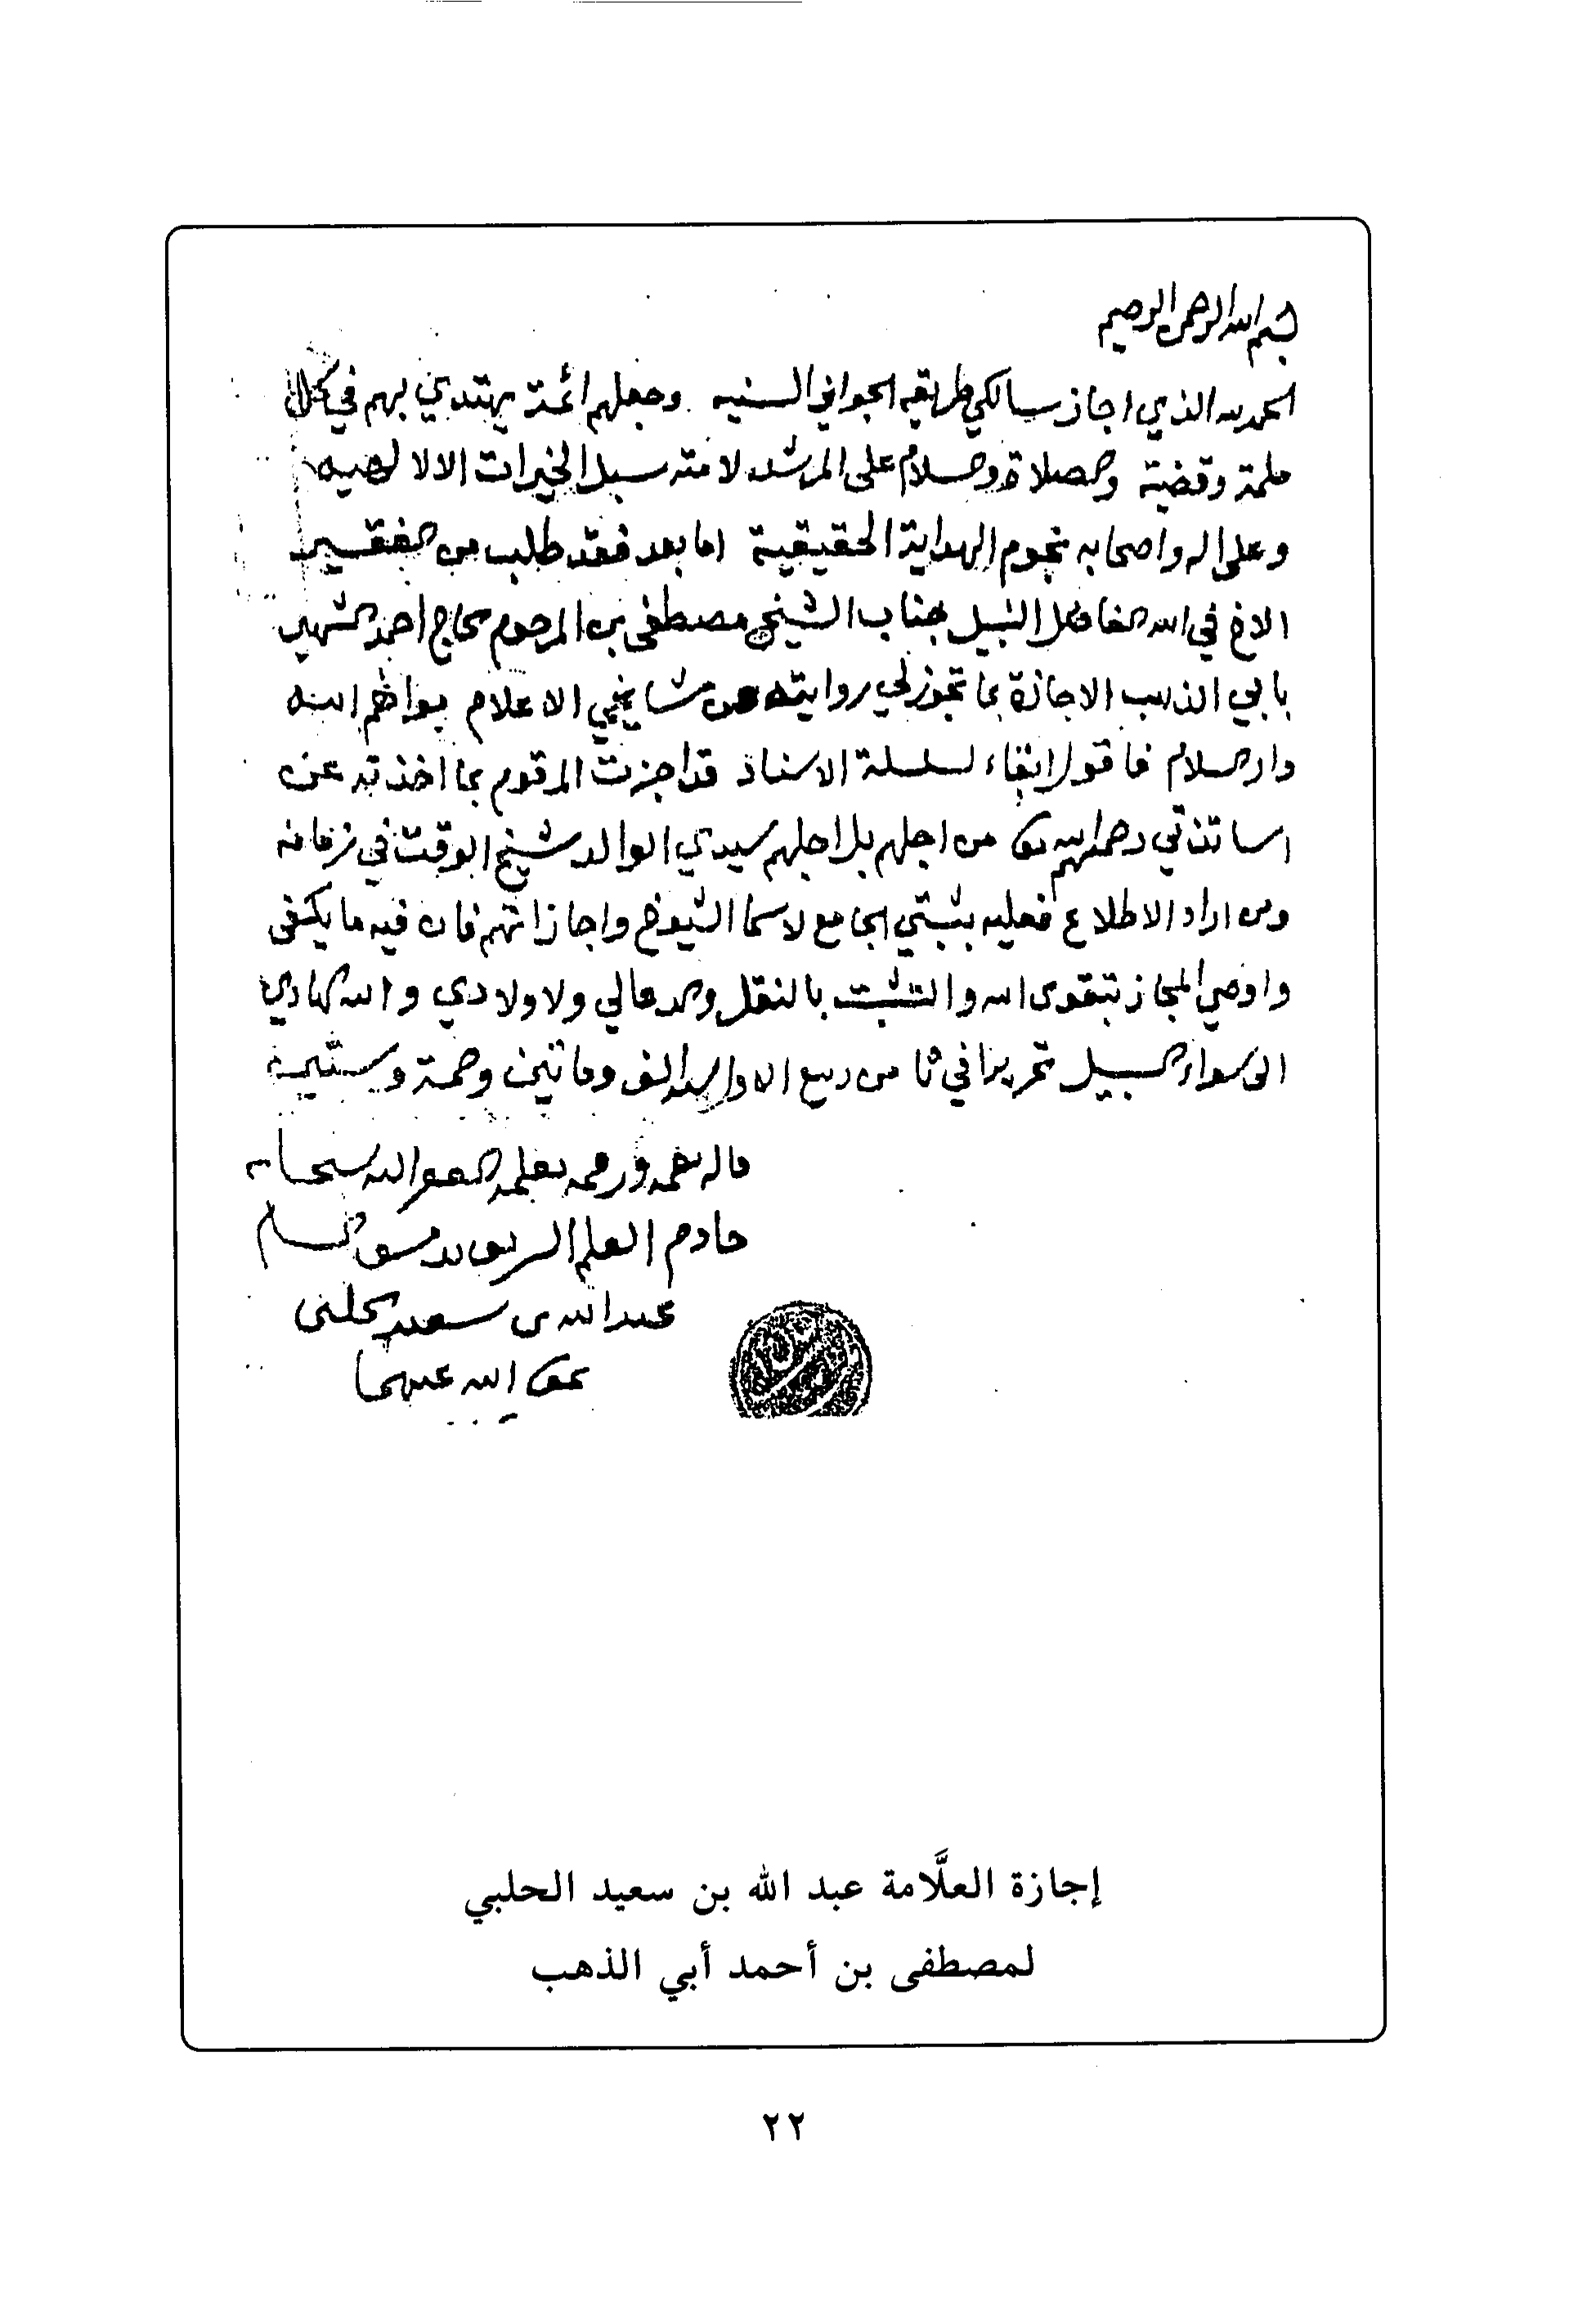 بسم الله الرحمن الرحيم
الحمد لله الذي اجاز سالكي طريقه الجوائز السنيه وجعلهم ائمة يهتدي بهم في كل
ملمة وقضية والصلاة والسلام على المرشد لامته سبل الخيرات الالالهيه
وعلى اله واصحابه نجوم الهداية الحقيقية اما بعد فقد طلب من الفقير
الاخ في الله الفاضل النبيل جناب الشيخ مصطفى بن المرحوم الحاج احمد الشهير
بابي الذهب الاجازة بما تجوز لي روايته عن مشايخي الاعلام بواهم الله
دار السلام فاقول ابقاء لسلسلة الاسناد قد اجزت المرقوم بما اخذته عن
اساتذتي رحمهم الله تعالى من اجلهم بل اجلهم سيدي الوالد شيخ الوقت في زمانه
ومن اراد الاطلاع فعليه بثبتي الجامع لاسما الشيوخ واجازاتهم فان فيه ما يكفى
واوصي المجاز بتقوى الله والتثبت بالنقل والدعا لي ولاولادي والله الهادي
الى سواء السبيل تحريرا في من ربيع الاول سنه الف ومائتين وخمسة وستين
قاله بفمه ورقمه بقلمه الفقير اليه سبحانه
خادم العلم الشريف بدمشق الشام
عبد الله بن سعيد الحلبي
عفى الله عنهما
إجازة العلَّامة عبد الله بن سعيد الحلبي
لمصطفى بن أحمد أبي الذهب
٢٢